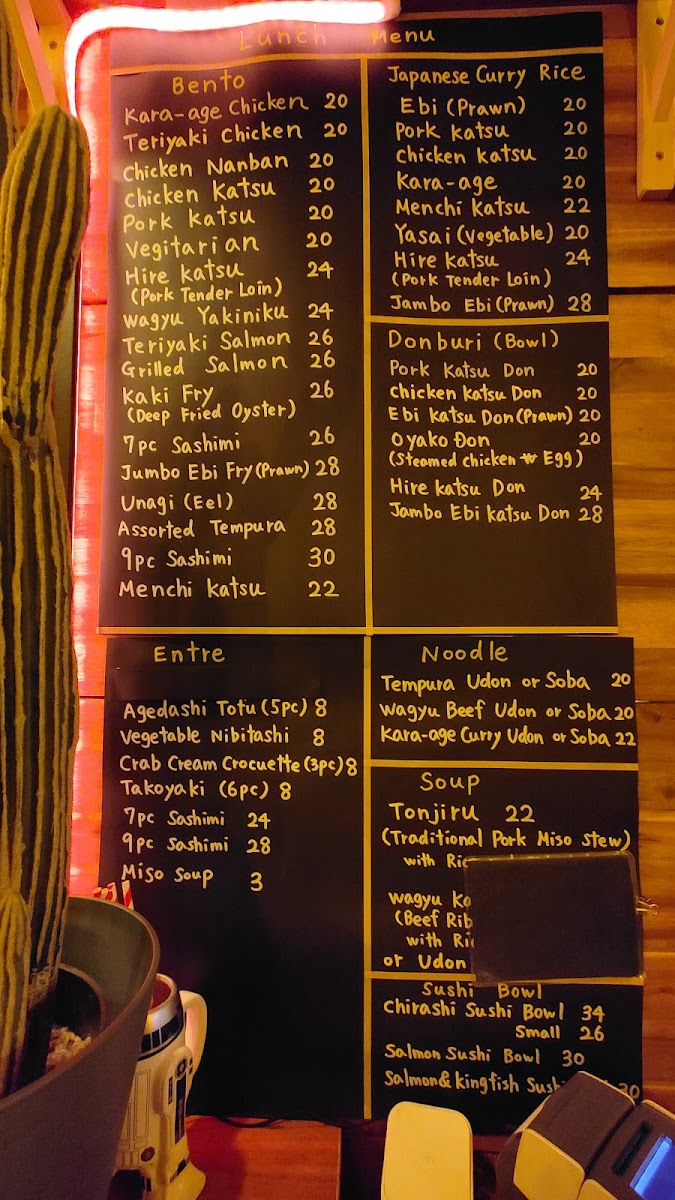 Lunch Menu
Bento
Kara-age Chicken 20
Teriyaki Chicken 20
Chicken Nanban 20
Chicken Katsu 20
Pork Katsu 20
Vegitarian 20
Hire Katsu 24
(Pork Tender Loin)
Wagyu Yakiniku 24
Teriyaki Salmon 26
Grilled Salmon 26
Kaki Fry 26
(Deep Fried Oyster)
7pc Sashimi 26
Jumbo Ebi Fry (Prawn) 28
Unagi (Eel) 28
Assorted Tempura 28
9pc Sashimi 30
Menchi Katsu 22
Japanese Curry Rice
Ebi (Prawn) 20
Pork Katsu 20
Chicken Katsu 20
Kara-age 20
Menchi Katsu 22
Yasai (Vegetable) 20
Hire Katsu 24
(Pork Tender Loin)
Jambo Ebi (Prawn) 28
Donburi (Bowl)
Pork Katsu Don 20
Chicken Katsu Don 20
Ebi Katsu Don (Prawn) 20
Oyako Don 20
(Steamed Chicken w Egg)
Hire Katsu Don 24
Jambo Ebi Katsu Don 28
Entre
Agedashi Tofu (5pc) 8
Vegetable Nibitashi 8
Crab Cream Crocuette (3pc) 8
Takoyaki (6pc) 8
7pc Sashimi 24
9pc Sashimi 28
Miso Soup 3
Noodle
Tempura Udon or Soba 20
Wagyu Beef Udon or Soba 20
Kara-age Curry Udon or Soba 22
Soup
Tonjiru 22
(Traditional Pork Miso Stew)
with
Wagyu
(Beef Rib
with
or Udon
Sushi Bowl
Chirashi Sushi Bowl 34
Small 26
Salmon Sushi Bowl 30
Salmon & Kingfish 30